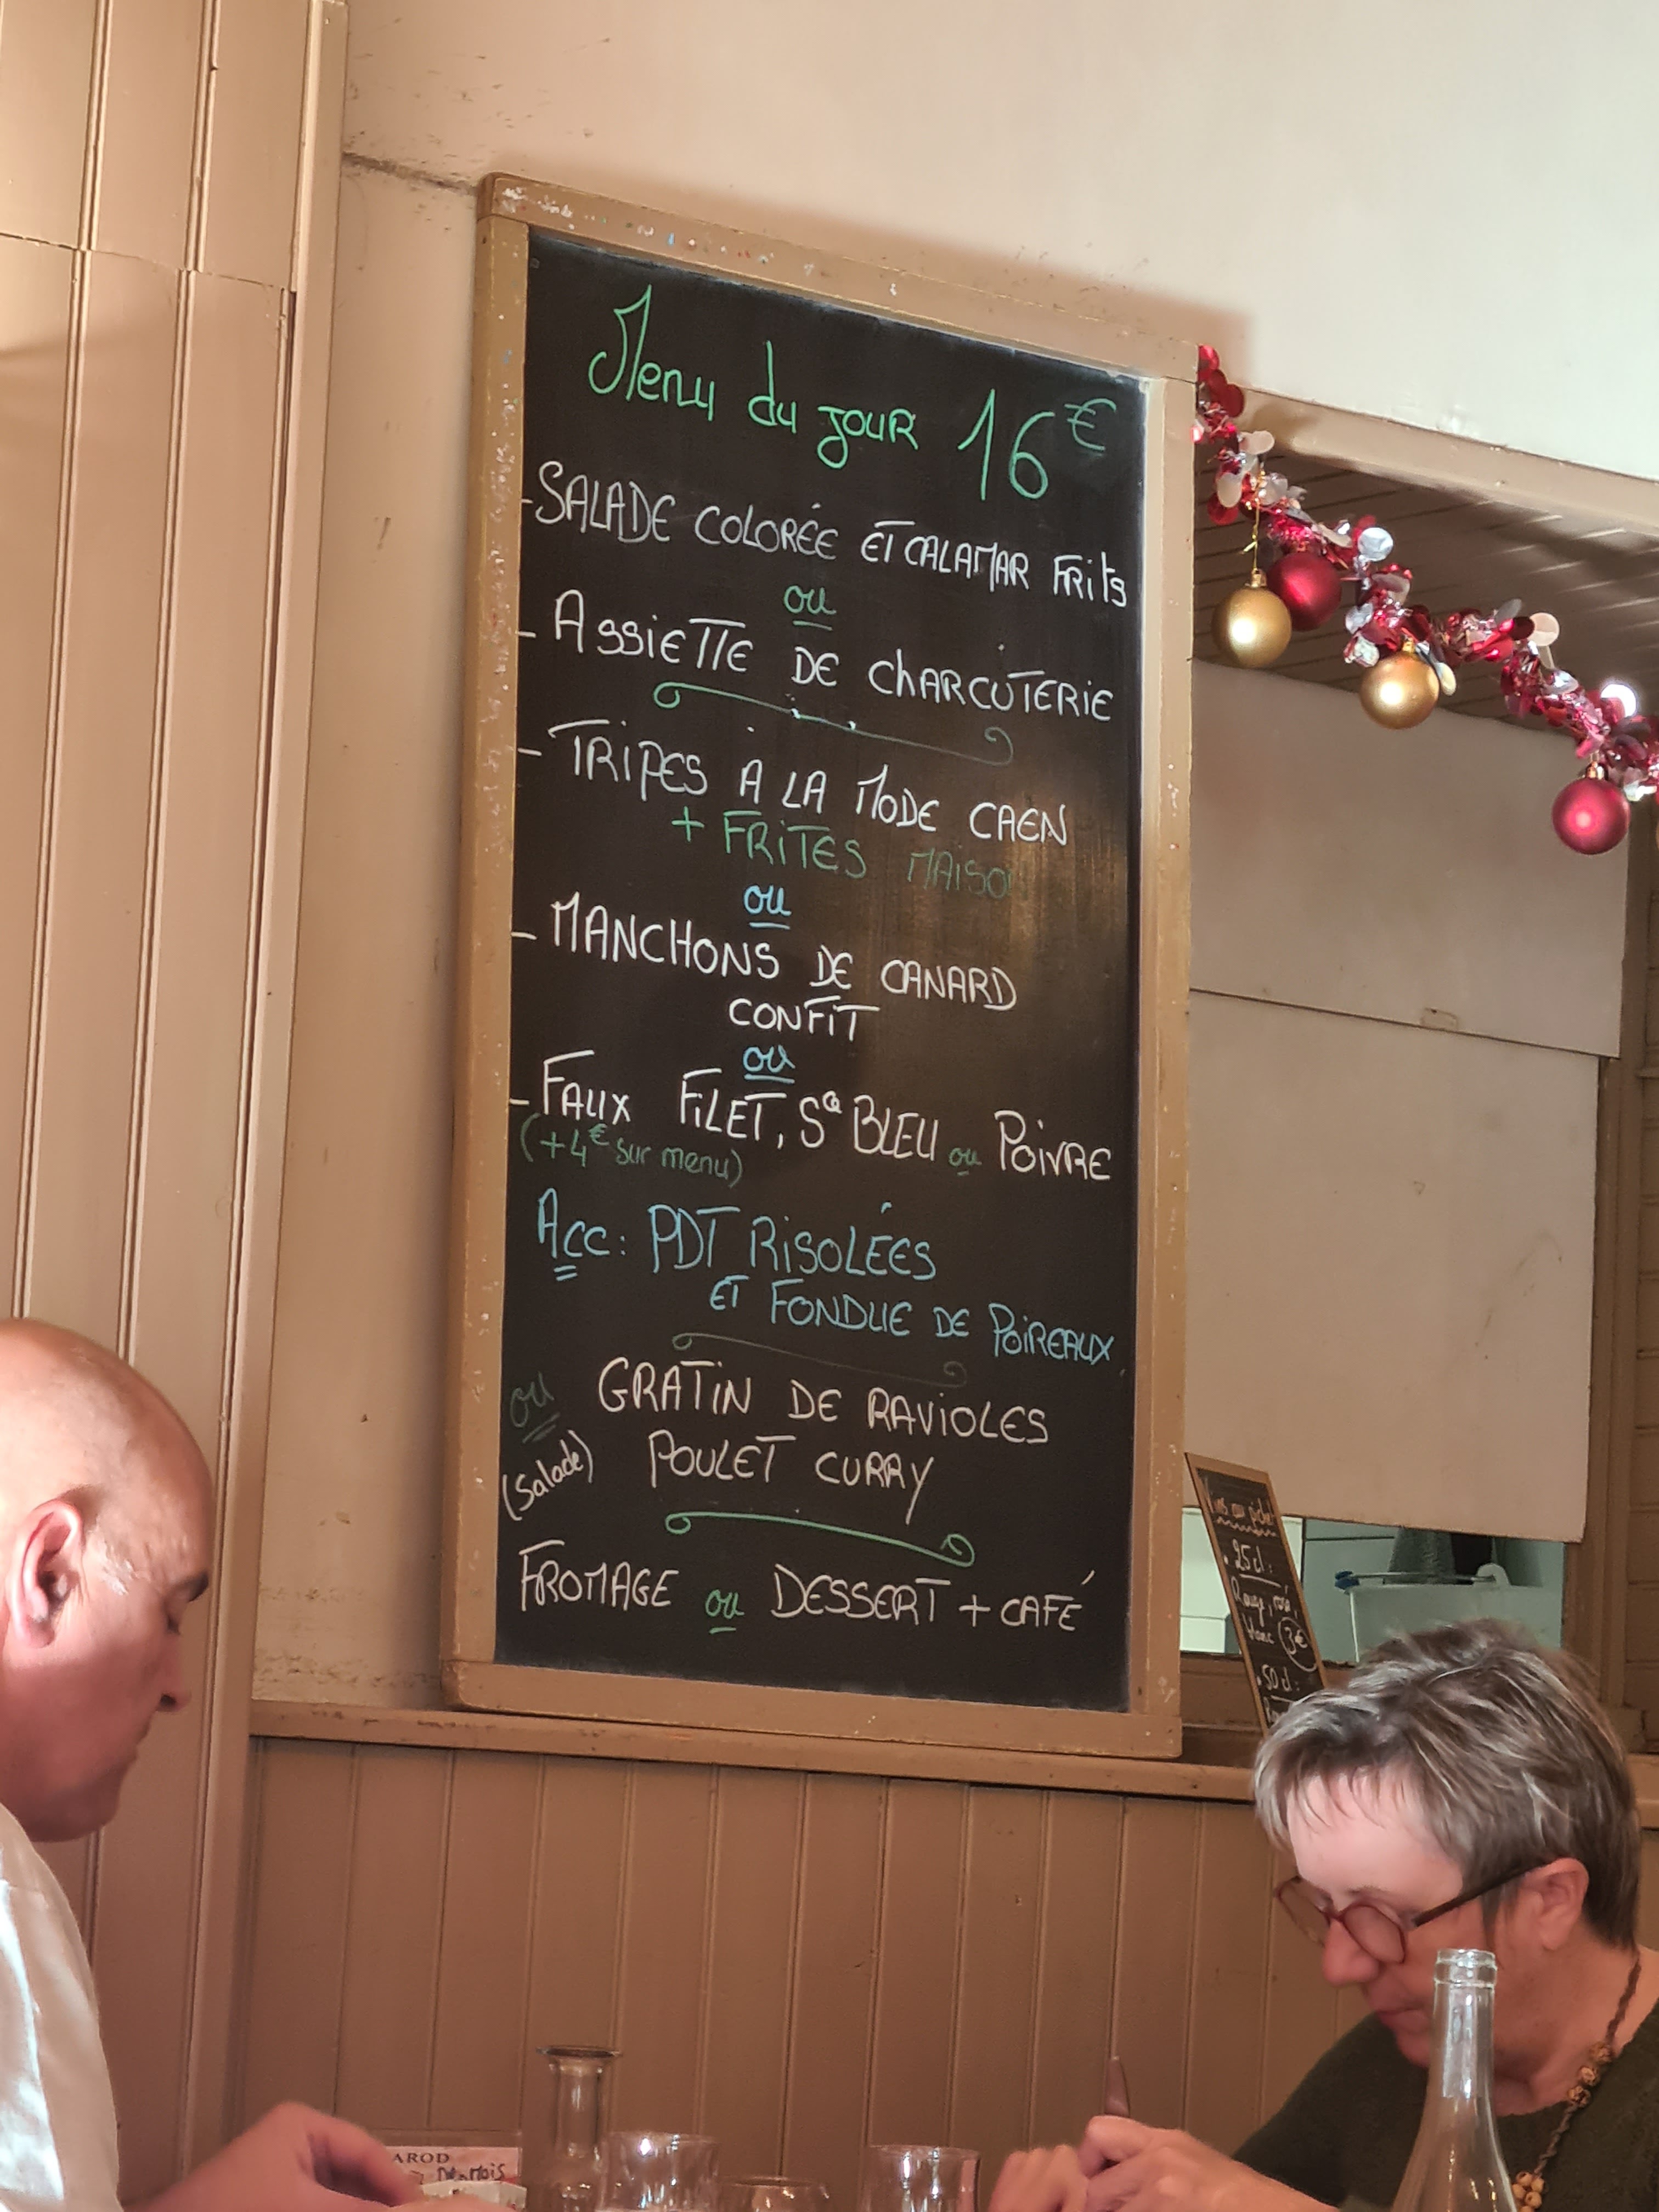 Menu du jour 16€
- SALADE COLORÉE ET CALAMAR FRits
ou
- ASSIETTE DE ChARCUTERIE
- TRIPES A LA MODE CAEN
+ FRITES MAISON
ou
- MANCHONS DE CANARD
CONFIT
ou
- FAUX FILET, Sce BLEU ou POIVRE
(+4€ sur menu)
Acc: PDT RISOLÉES
ET FONDUE DE POIREAUX
ou GRATIN DE RAVIOLES
(Salade) POULET CURRY
FROMAGE ou DESSERT + CAFÉ
Vins au pichet
• 25 cl :
Rouge, rosé,
blanc 3€
• 50 cl :
AROD